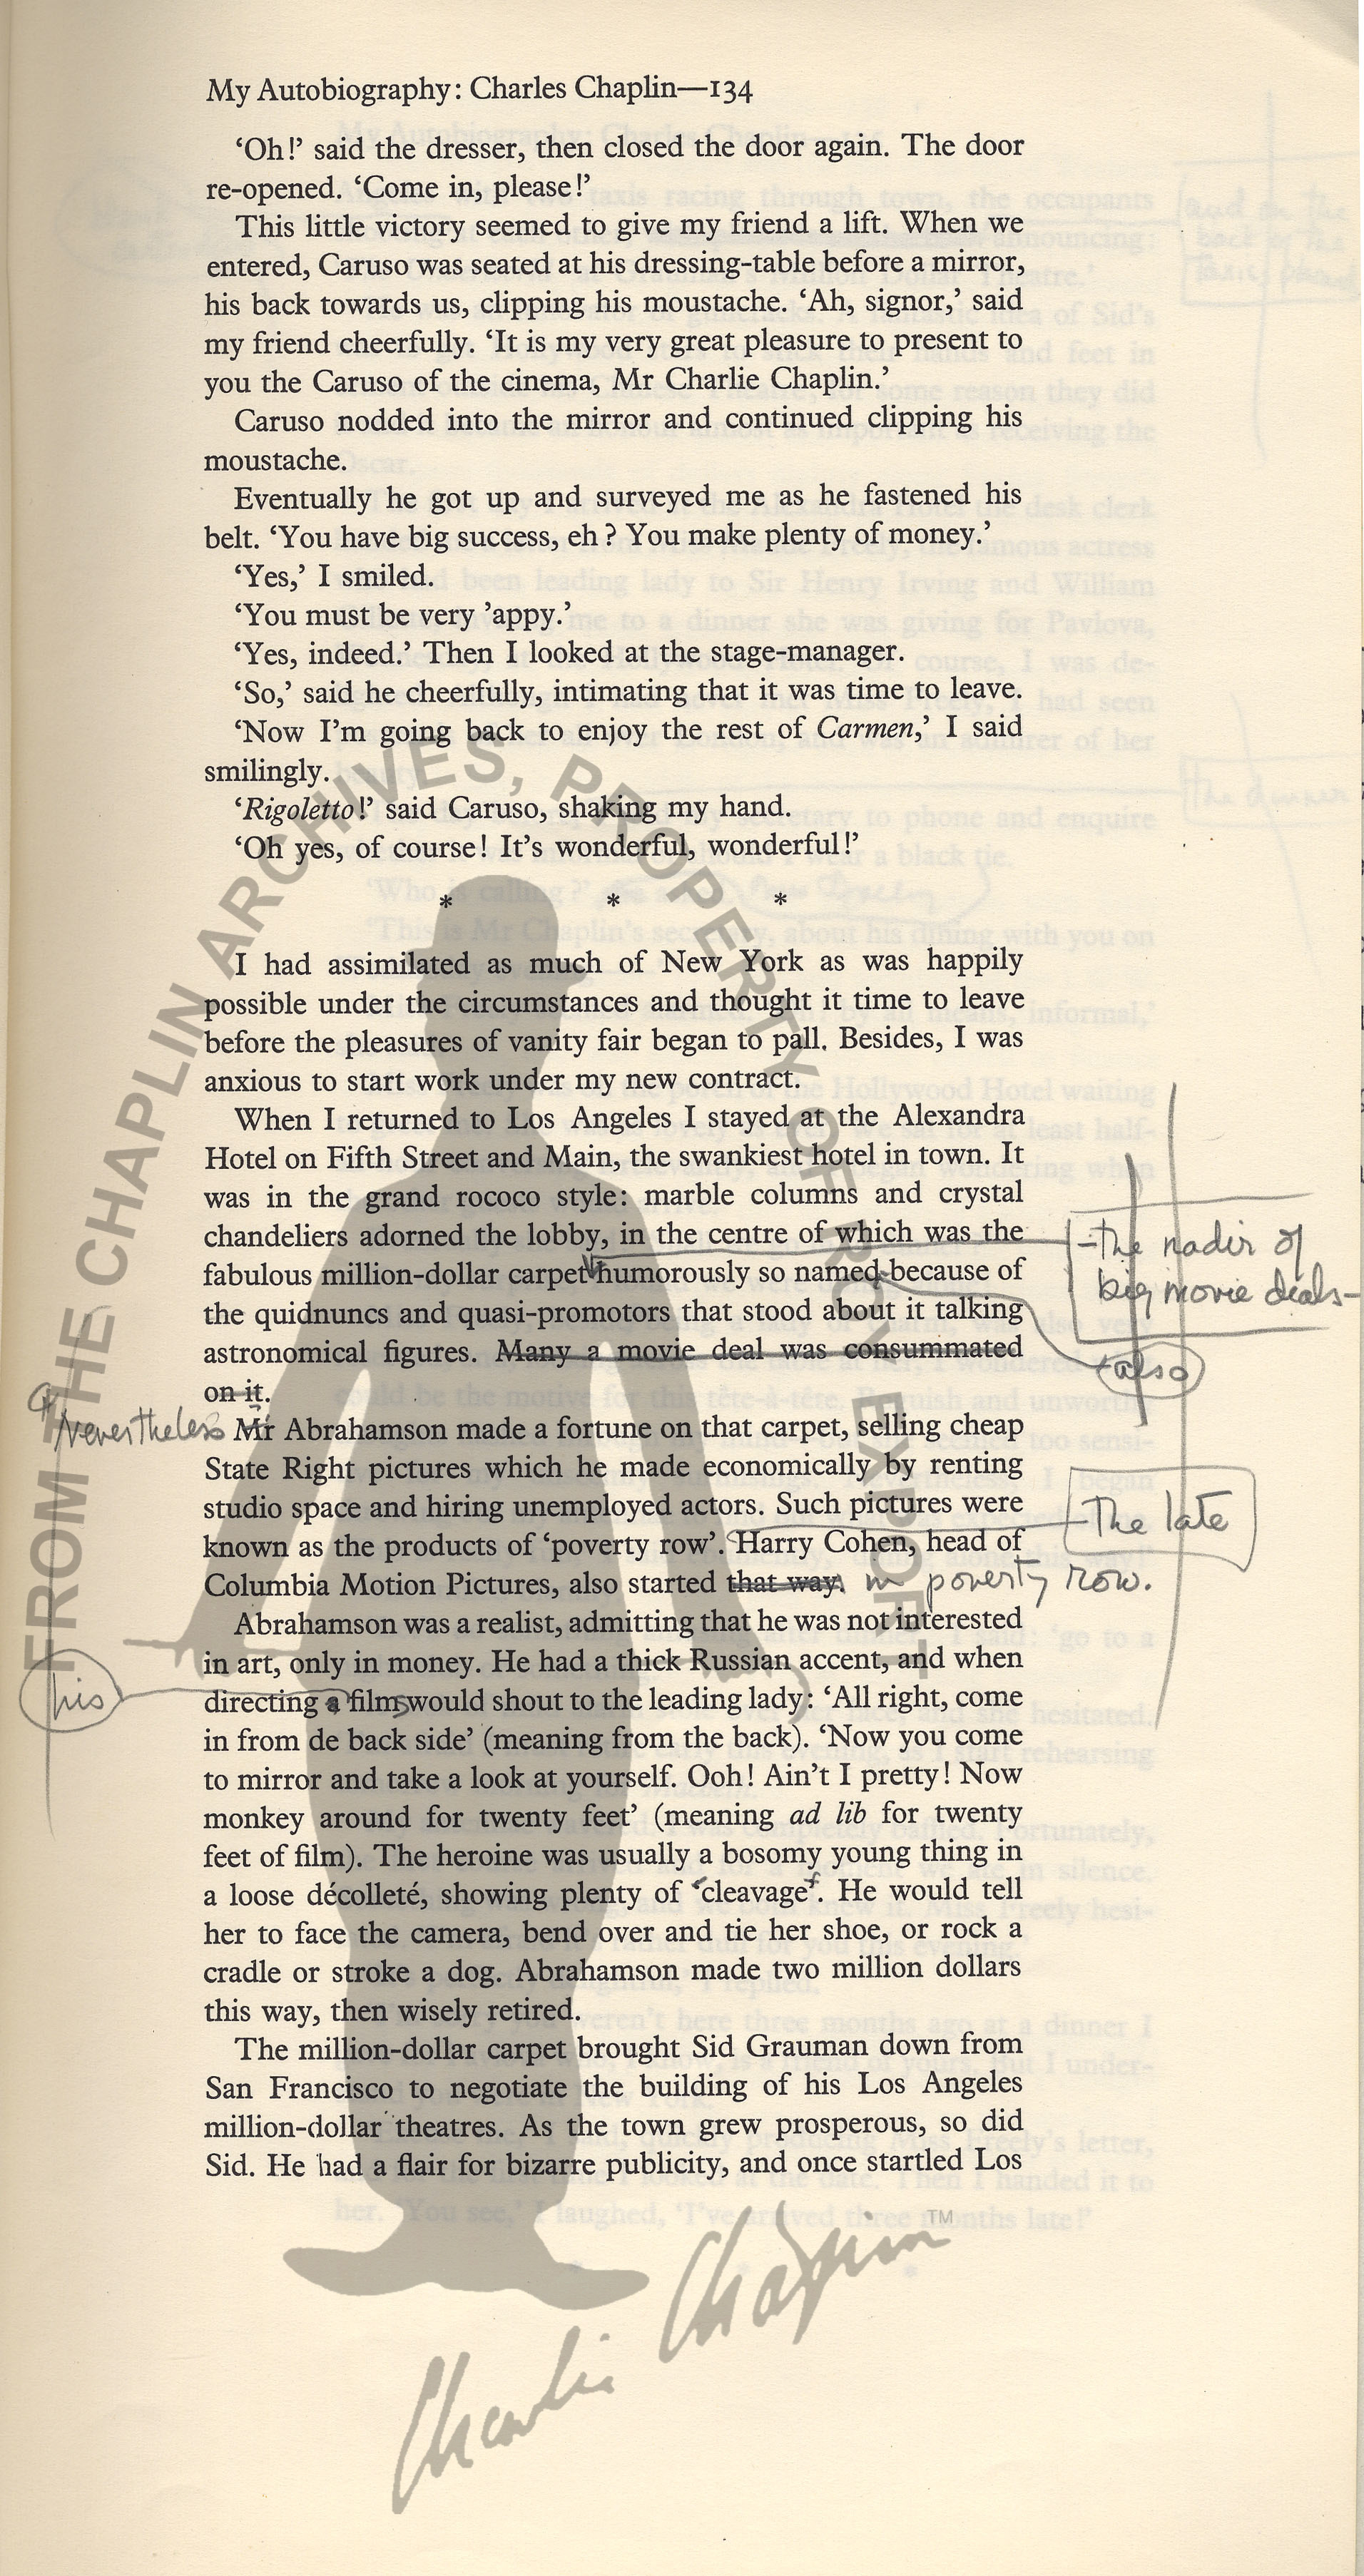 My Autobiography: Charles Chaplin—134
‘Oh!’ said the dresser, then closed the door again. The door
re-opened. ‘Come in, please!’
This little victory seemed to give my friend a lift. When we
entered, Caruso was seated at his dressing-table before a mirror,
his back towards us, clipping his moustache. ‘Ah, signor,’ said
my friend cheerfully. ‘It is my very great pleasure to present to
you the Caruso of the cinema, Mr Charlie Chaplin.’
Caruso nodded into the mirror and continued clipping his
moustache.
Eventually he got up and surveyed me as he fastened his
belt. ‘You have big success, eh? You make plenty of money.’
‘Yes,’ I smiled.
‘You must be very ’appy.’
‘Yes, indeed.’ Then I looked at the stage-manager.
‘So,’ said he cheerfully, intimating that it was time to leave.
‘Now I’m going back to enjoy the rest of Carmen,’ I said
smilingly.
‘Rigoletto!’ said Caruso, shaking my hand.
‘Oh yes, of course! It’s wonderful, wonderful!’
* * *
I had assimilated as much of New York as was happily
possible under the circumstances and thought it time to leave
before the pleasures of vanity fair began to pall. Besides, I was
anxious to start work under my new contract.
When I returned to Los Angeles I stayed at the Alexandra
Hotel on Fifth Street and Main, the swankiest hotel in town. It
was in the grand rococo style: marble columns and crystal
chandeliers adorned the lobby, in the centre of which was the
-the nadir of
big movie deals-
fabulous million-dollar carpet humorously so named because of
the quidnuncs and quasi-promotors that stood about it talking
astronomical figures. Many a movie deal was consummated
also
on it.
Nevertheless
Mr Abrahamson made a fortune on that carpet, selling cheap
State Right pictures which he made economically by renting
studio space and hiring unemployed actors. Such pictures were
The late
known as the products of ‘poverty row’. Harry Cohen, head of
Columbia Motion Pictures, also started that way. in poverty row.
Abrahamson was a realist, admitting that he was not interested
in art, only in money. He had a thick Russian accent, and when
his
directing a films would shout to the leading lady: ‘All right, come
in from de back side’ (meaning from the back). ‘Now you come
to mirror and take a look at yourself. Ooh! Ain’t I pretty! Now
monkey around for twenty feet’ (meaning ad lib for twenty
feet of film). The heroine was usually a bosomy young thing in
a loose décolleté, showing plenty of ‘cleavage’. He would tell
her to face the camera, bend over and tie her shoe, or rock a
cradle or stroke a dog. Abrahamson made two million dollars
this way, then wisely retired.
The million-dollar carpet brought Sid Grauman down from
San Francisco to negotiate the building of his Los Angeles
million-dollar theatres. As the town grew prosperous, so did
Sid. He had a flair for bizarre publicity, and once startled Los
FROM THE CHAPLIN ARCHIVES, PROPERTY OF ROY EXPORT
Charlie Chaplin TM